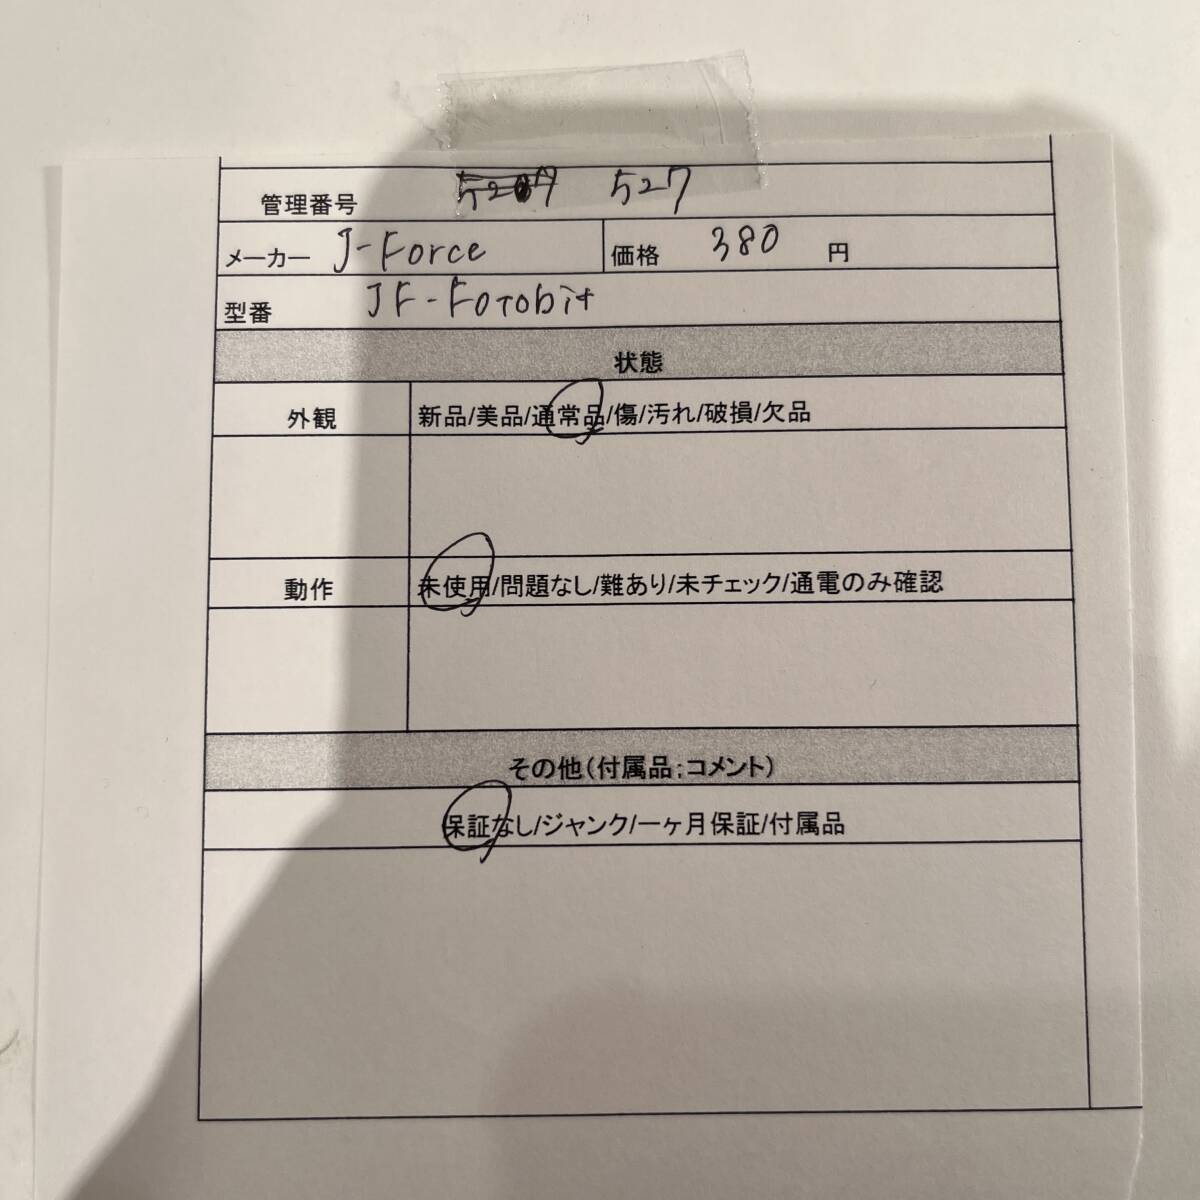 管理番号 527
メーカー J-Force 価格 380 円
型番 JF-Fotobit
状態
外観 新品/美品/通常品/傷/汚れ/破損/欠品
動作 未使用/問題なし/難あり/未チェック/通電のみ確認
その他(付属品;コメント)
保証なし/ジャンク/一ヶ月保証/付属品